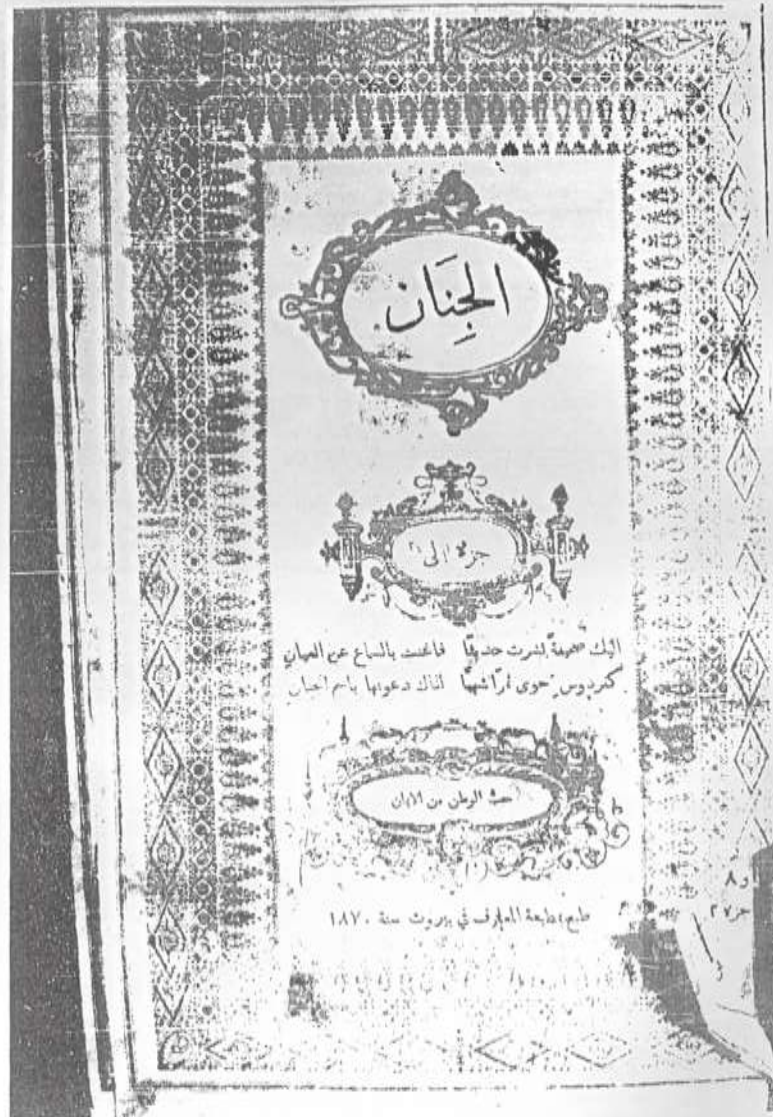 الجِنَان
جزء
اليك صحيفةً نشرت حديثًا فاغنت بالسماع عن العيان
كفردوس حوى ثمرًا شهيًّا لذاك دعوتها باسم الجنان
حبّ الوطن من الايمان
طبع بمطبعة المعارف في بيروت سنة ١٨٧٠